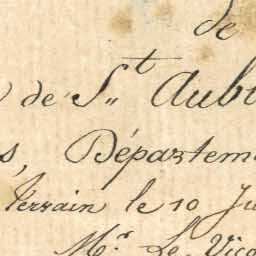 de
de St Aub
s, Départem
terrain le 10 Ju
Mr. Le Vico